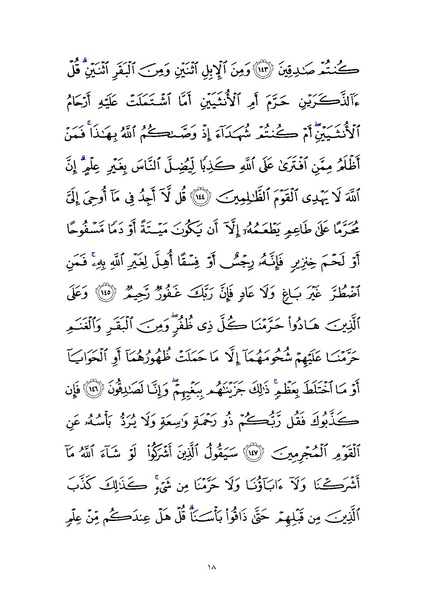 كُنتُمْ صَـٰدِقِينَ ﴿١٤٣﴾ وَمِنَ ٱلْإِبِلِ ٱثْنَيْنِ وَمِنَ ٱلْبَقَرِ ٱثْنَيْنِ ۗ قُلْ
ءَآلذَّكَرَيْنِ حَرَّمَ أَمِ ٱلْأُنثَيَيْنِ أَمَّا ٱشْتَمَلَتْ عَلَيْهِ أَرْحَامُ
ٱلْأُنثَيَيْنِ ۖ أَمْ كُنتُمْ شُهَدَآءَ إِذْ وَصَّىٰكُمُ ٱللَّهُ بِهَـٰذَا ۚ فَمَنْ
أَظْلَمُ مِمَّنِ ٱفْتَرَىٰ عَلَى ٱللَّهِ كَذِبًا لِّيُضِلَّ ٱلنَّاسَ بِغَيْرِ عِلْمٍ ۗ إِنَّ
ٱللَّهَ لَا يَهْدِى ٱلْقَوْمَ ٱلظَّـٰلِمِينَ ﴿١٤٤﴾ قُل لَّآ أَجِدُ فِى مَآ أُوحِىَ إِلَىَّ
مُحَرَّمًا عَلَىٰ طَاعِمٍ يَطْعَمُهُۥٓ إِلَّآ أَن يَكُونَ مَيْتَةً أَوْ دَمًا مَّسْفُوحًا
أَوْ لَحْمَ خِنزِيرٍ فَإِنَّهُۥ رِجْسٌ أَوْ فِسْقًا أُهِلَّ لِغَيْرِ ٱللَّهِ بِهِۦ ۚ فَمَنِ
ٱضْطُرَّ غَيْرَ بَاغٍ وَلَا عَادٍ فَإِنَّ رَبَّكَ غَفُورٌ رَّحِيمٌ ﴿١٤٥﴾ وَعَلَى
ٱلَّذِينَ هَادُوا۟ حَرَّمْنَا كُلَّ ذِى ظُفُرٍ ۖ وَمِنَ ٱلْبَقَرِ وَٱلْغَنَمِ
حَرَّمْنَا عَلَيْهِمْ شُحُومَهُمَآ إِلَّا مَا حَمَلَتْ ظُهُورُهُمَآ أَوِ ٱلْحَوَايَآ
أَوْ مَا ٱخْتَلَطَ بِعَظْمٍ ۚ ذَٰلِكَ جَزَيْنَـٰهُم بِبَغْيِهِمْ ۖ وَإِنَّا لَصَـٰدِقُونَ ﴿١٤٦﴾ فَإِن
كَذَّبُوكَ فَقُل رَّبُّكُمْ ذُو رَحْمَةٍ وَٰسِعَةٍ وَلَا يُرَدُّ بَأْسُهُۥ عَنِ
ٱلْقَوْمِ ٱلْمُجْرِمِينَ ﴿١٤٧﴾ سَيَقُولُ ٱلَّذِينَ أَشْرَكُوا۟ لَوْ شَآءَ ٱللَّهُ مَآ
أَشْرَكْنَا وَلَآ ءَابَآؤُنَا وَلَا حَرَّمْنَا مِن شَىْءٍ ۚ كَذَٰلِكَ كَذَّبَ
ٱلَّذِينَ مِن قَبْلِهِمْ حَتَّىٰ ذَاقُوا۟ بَأْسَنَا ۗ قُلْ هَلْ عِندَكُم مِّنْ عِلْمٍ
١٨